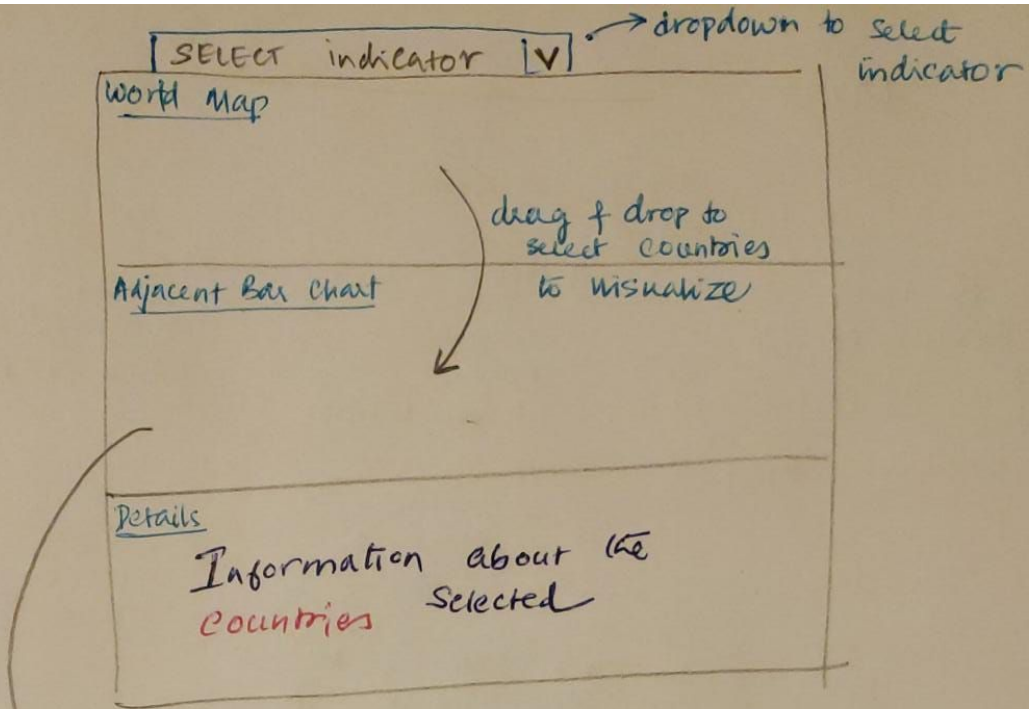 SELECT indicator V
dropdown to select
indicator
World Map
drag & drop to
select countries
to visualize
Adjacent Bar Chart
Details
Information about the
countries selected